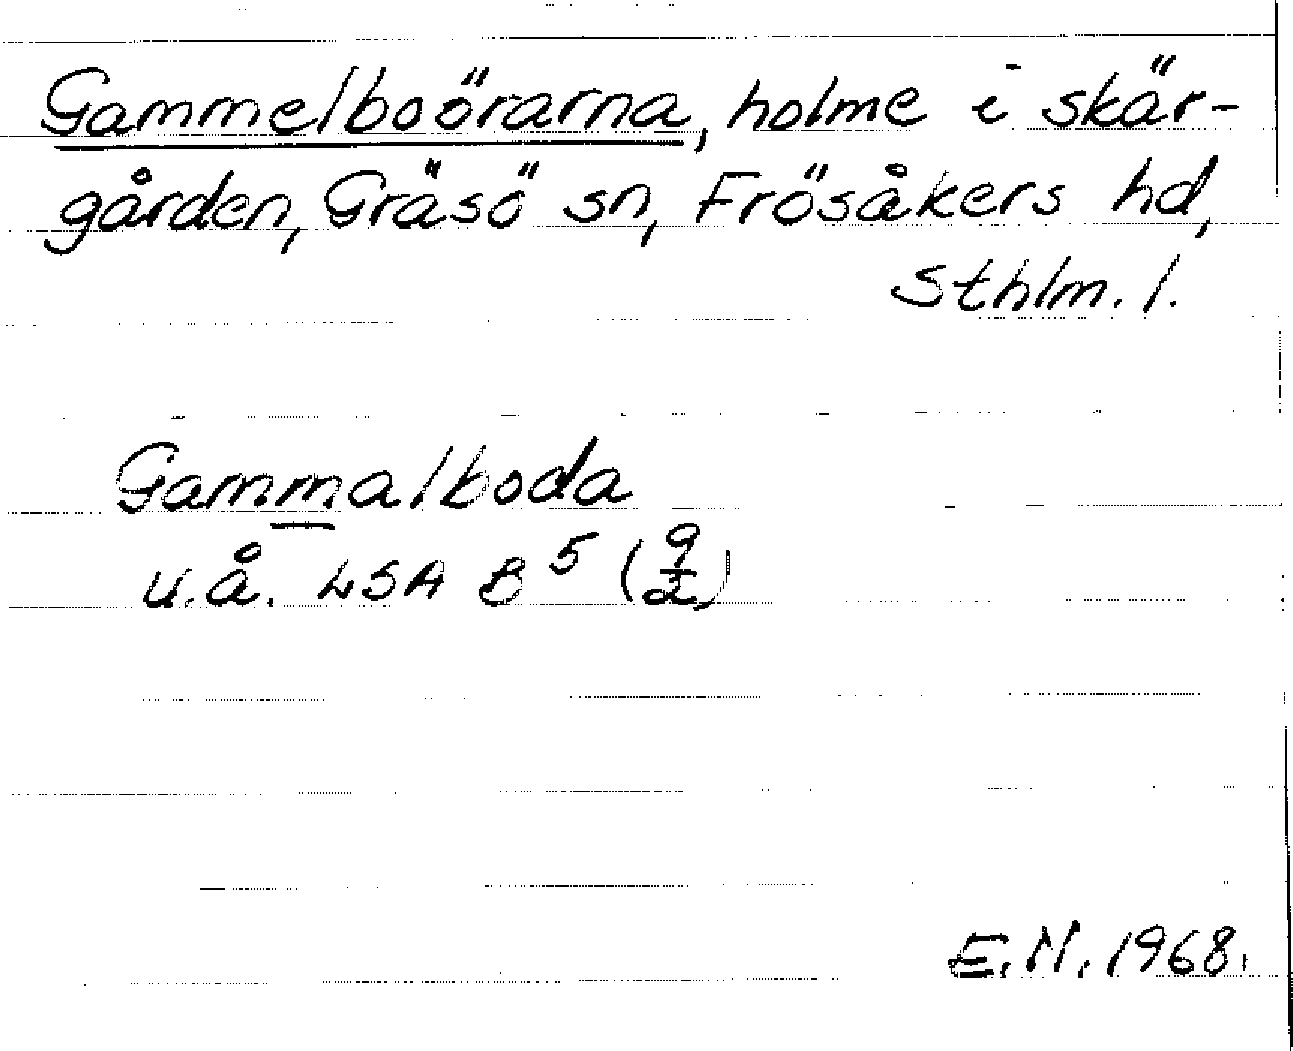 Gammelboörarna, holme i skär-
gården, Gräsö sn, Frösåkers hd,
Sthlm. l.
Gammalboda
u.å. LSA B 5 (9/2)
E.N. 1968.